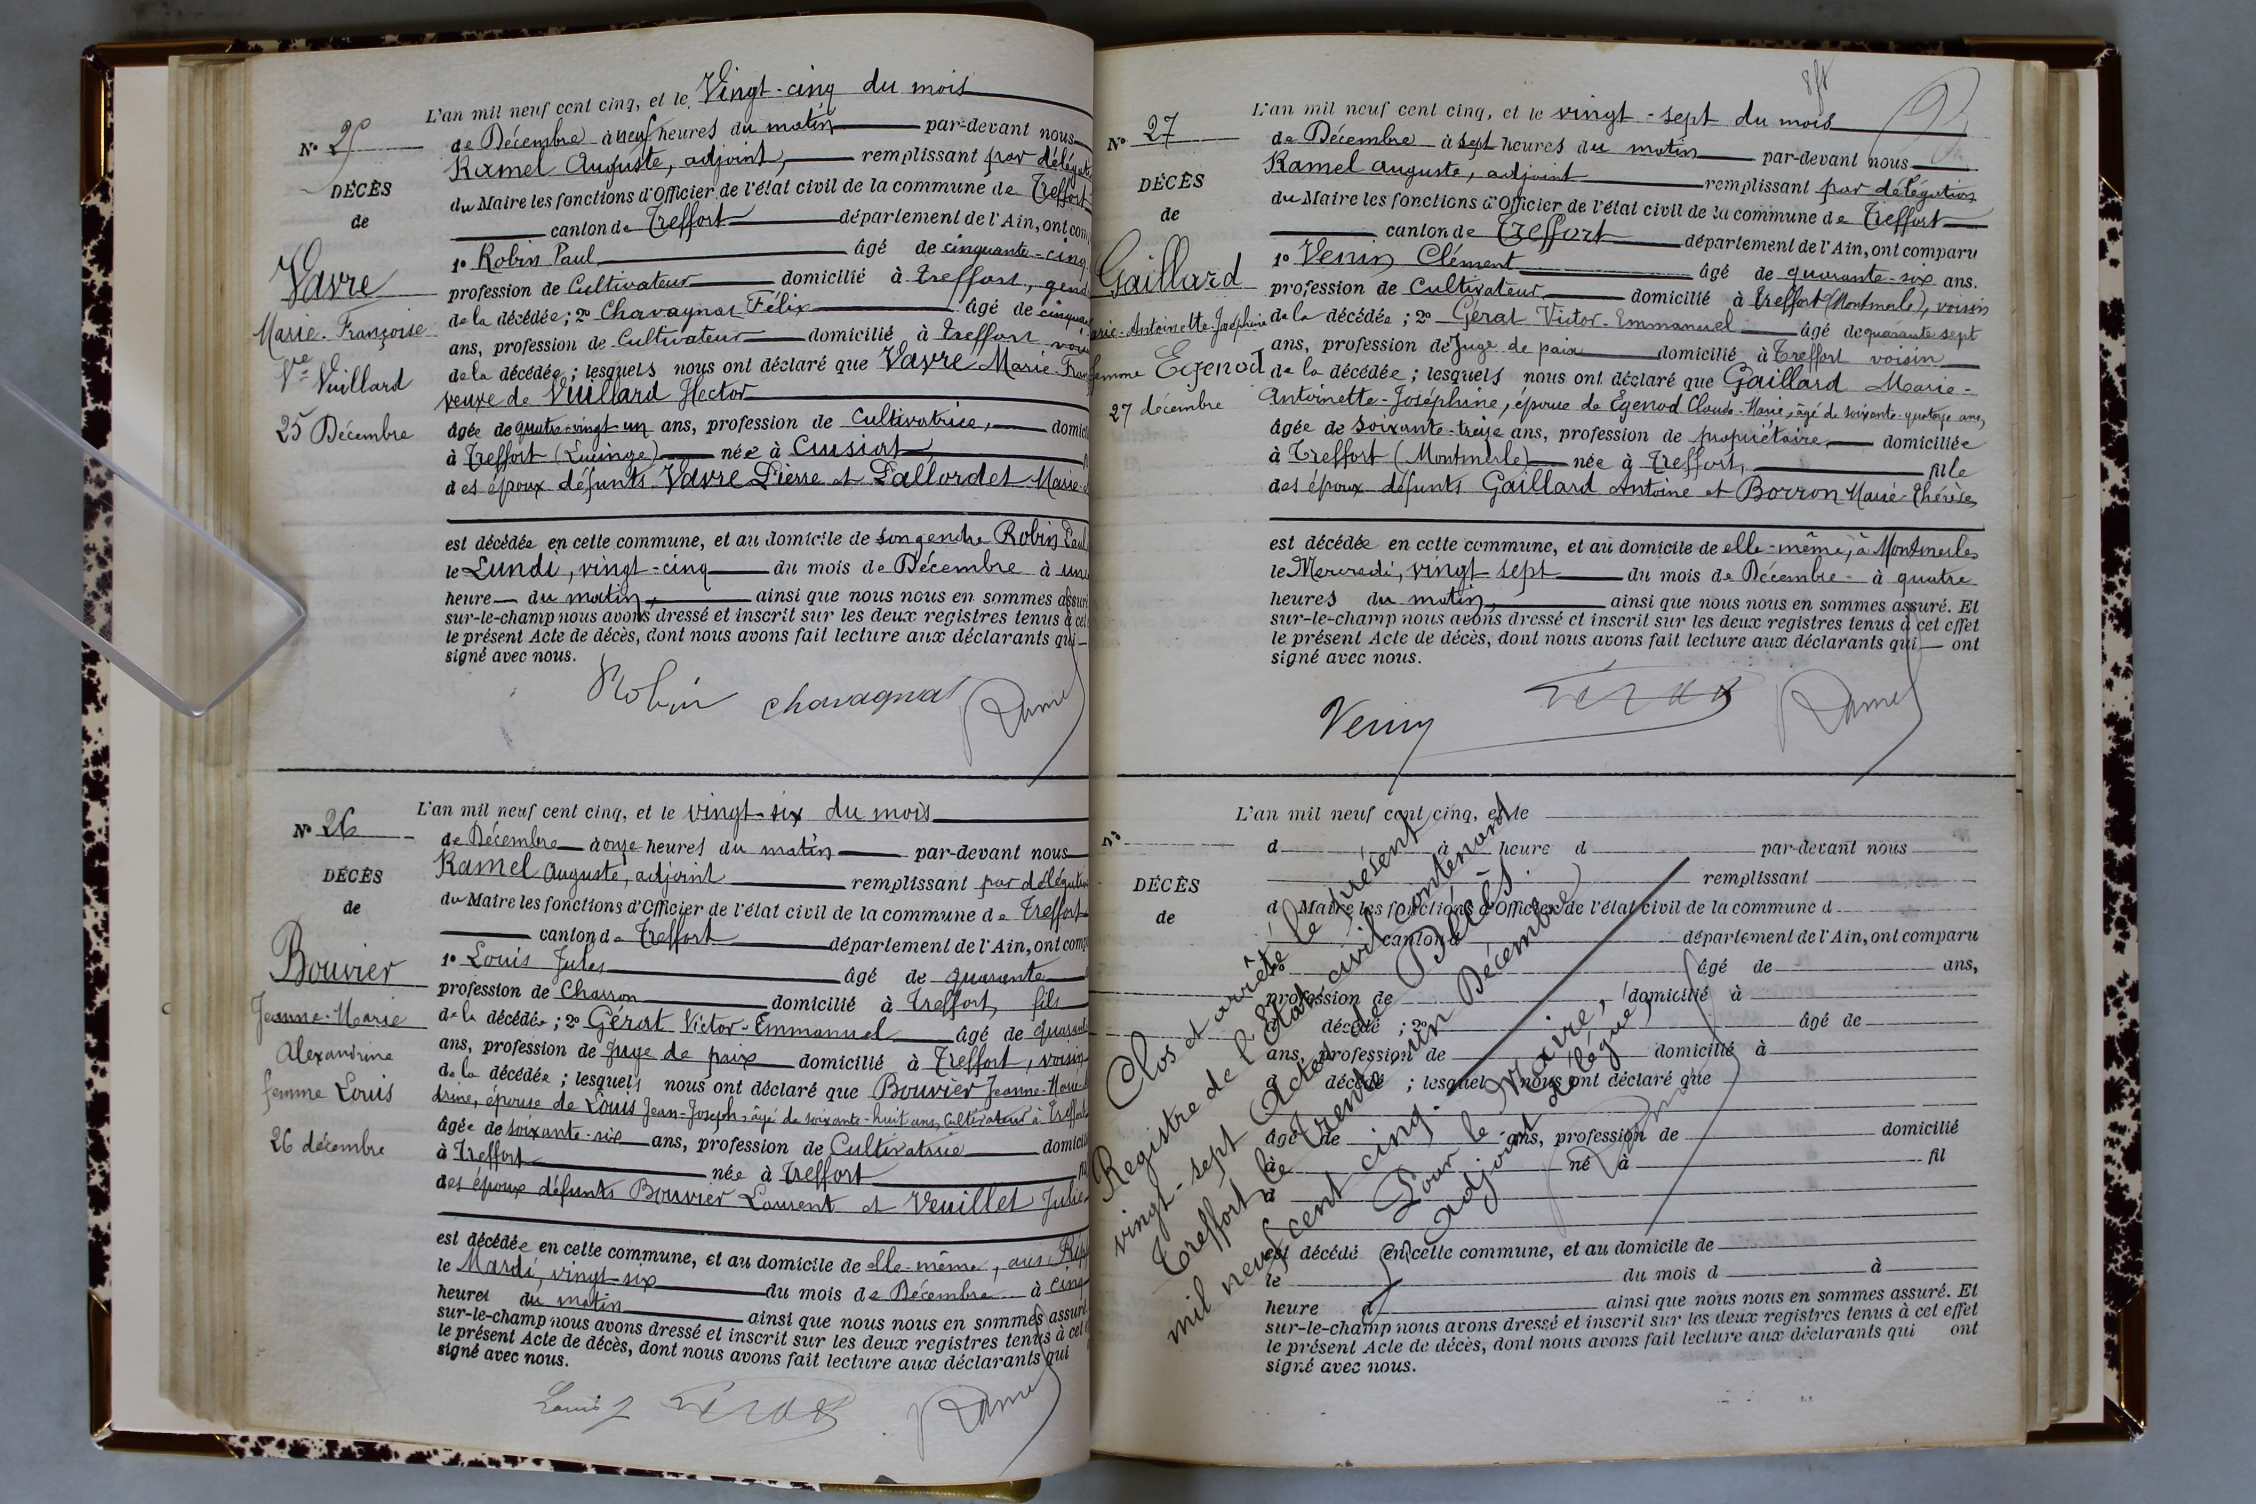 L'an mil neuf cent cinq, et le Vingt-cinq du mois
N° 25
de Décembre à neuf heures du matin par-devant nous
Ramel Auguste, adjoint, remplissant par délégat
DÉCÈS
du Maire les fonctions d'Officier de l'état civil de la commune de Treffort
de
canton de Treffort département de l'Ain, ont com
Vavre
1° Robin Paul âgé de cinquante-cinq
profession de Cultivateur domicilié à Treffort, gend
Marie-Françoise
de la décédée; 2° Chavagnat Félix âgé de cinquan
ans, profession de Cultivateur domicilié à Treffort
Vve Vuillard
de la décédée; lesquels nous ont déclaré que Vavre Marie-Fran
veuve de Vuillard Hector
25 Décembre
âgée de quatre-vingt-un ans, profession de Cultivatrice, domici
à Treffort (Lucinge) née à Cuisiat
des époux défunts Vavre Pierre et Pallordet Marie
est décédée en cette commune, et au domicile de son gendre Robin Paul
le Lundi, vingt-cinq du mois de Décembre à une
heure du matin, ainsi que nous nous en sommes assuré
sur-le-champ nous avons dressé et inscrit sur les deux registres tenus à cet
le présent Acte de décès, dont nous avons fait lecture aux déclarants qui
signé avec nous.
Robin Chavagnat Ramel
L'an mil neuf cent cinq, et le vingt-six du mois
N° 26
de Décembre à onze heures du matin par-devant nous
Ramel Auguste, adjoint remplissant par délégation
DÉCÈS
du Maire les fonctions d'Officier de l'état civil de la commune de Treffort
de
canton de Treffort département de l'Ain, ont comp
Bouvier
1° Louis Jules âgé de quarante
profession de Charron domicilié à Treffort, fils
Jeanne-Marie
de la décédée; 2° Gérat Victor-Emmanuel âgé de quarante
Alexandrine
ans, profession de Juge de paix domicilié à Treffort, voisin
femme Louis
de la décédée; lesquels nous ont déclaré que Bouvier Jeanne-Marie
drine, épouse de Louis Jean-Joseph, âgé de soixante-huit ans, Cultivateur à Treffort
26 décembre
âgée de soixante-six ans, profession de Cultivatrice domicili
à Treffort née à Treffort
des époux défunts Bouvier Laurent et Veuillet Julie
est décédée en cette commune, et au domicile de elle-même, aux
le Mardi, vingt-six du mois de Décembre à cinq
heures du matin ainsi que nous nous en sommes assuré
sur-le-champ nous avons dressé et inscrit sur les deux registres tenus à cet
le présent Acte de décès, dont nous avons fait lecture aux déclarants qui
signé avec nous.
Louis J Gérat Ramel
L'an mil neuf cent cinq, et le vingt-sept du mois
N° 27
de Décembre à sept heures du matin par-devant nous
Ramel Auguste, adjoint remplissant par délégation
DÉCÈS
du Maire les fonctions d'Officier de l'état civil de la commune de Treffort
de
canton de Treffort département de l'Ain, ont comparu
Gaillard
1° Venin Clément âgé de quarante-six ans.
profession de Cultivateur domicilié à Treffort (Montmerle), voisin
arie-Antoinette-Joséphine
de la décédée; 2° Gérat Victor-Emmanuel âgé de quarante sept
ans, profession de Juge de paix domicilié à Treffort voisin
femme Egenod
de la décédée; lesquels nous ont déclaré que Gaillard Marie-
27 décembre
Antoinette-Joséphine, épouse de Egenod Claude-Marie, âgé de soixante-quatorze ans,
âgée de soixante-treize ans, profession de propriétaire, domiciliée
à Treffort (Montmerle) née à Treffort, fille
des époux défunts Gaillard Antoine et Borron Marie-Thérèse
est décédée en cette commune, et au domicile de elle-même, à Montmerle
le Mercredi, vingt-sept du mois de Décembre à quatre
heures du matin, ainsi que nous nous en sommes assuré. Et
sur-le-champ nous avons dressé et inscrit sur les deux registres tenus à cet effet
le présent Acte de décès, dont nous avons fait lecture aux déclarants qui ont
signé avec nous.
Venin Gérat Ramel
L'an mil neuf cent cinq, et le
N°
d à heure d par-devant nous
remplissant
DÉCÈS
d Maire les fonctions d'Officier de l'état civil de la commune d
de
canton d département de l'Ain, ont comparu
1° âgé de ans,
profession de domicilié à
d décédé; 2° âgé de
ans, profession de domicilié à
d décédé; lesquel nous ont déclaré que
âgé de ans, profession de domicilié
à né à fil
d
est décédé en cette commune, et au domicile de
le du mois d à
heure d ainsi que nous nous en sommes assuré. Et
sur-le-champ nous avons dressé et inscrit sur les deux registres tenus à cet effet
le présent Acte de décès, dont nous avons fait lecture aux déclarants qui ont
signé avec nous.
Clos et arrêté le présent
Registre de l'Etat civil contenant
vingt-sept Actes de Décès.
Treffort le trente un Décembre
mil neuf cent cinq.
Pour le Maire,
Adjoint délégué,
Ramel